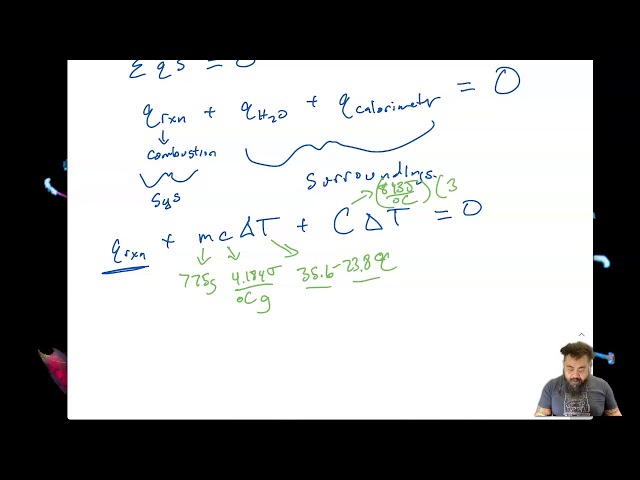 Σqs = 0
qrxn + qH2O + qcalorimeter = 0
combustion
sys
surroundings
893J/°C (3
qrxn + mcΔT + CΔT = 0
775g 4.184J/°Cg 35.6-23.8°C